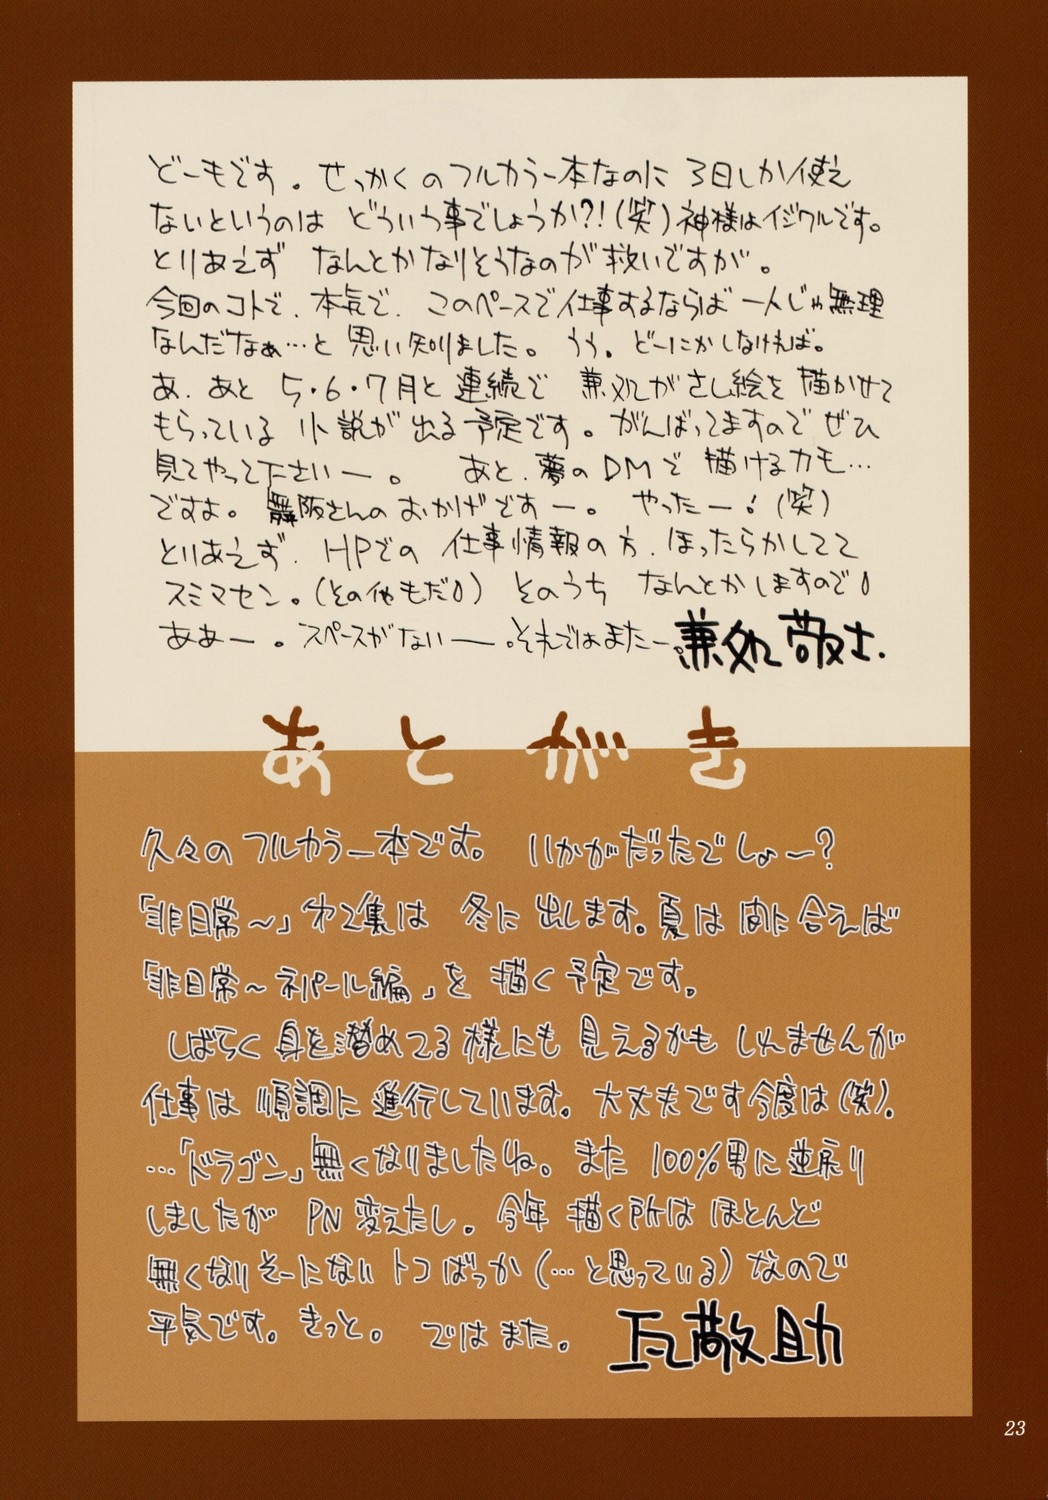 どーもです。せっかくのフルカラー本なのに 3日しか使え
ないというのは どういう事でしょうか?!(笑)神様はイジワルです。
とりあえず なんとかなりそうなのが救いですが。
今回のコトで、本気で、このペースで仕事するならば 一人じゃ無理
なんだなぁ…と 思い知りました。うう。どーにかしなければ。
あ、あと 5・6・7月と 連続で 兼処がさし絵を 描かせて
もらっている 小説が 出る予定です。がんばってますので ぜひ
見てやって下さいー。 あと、夢のDMで 描けるカモ…
ですよ。舞阪さんの おかげですー。 やったー!(笑)
とりあえず、HPでの 仕事情報の方、ほったらかしてて
スミマセン。(その他もだ0) そのうち なんとかしますので0
ああー。スペースがないー。それではまたー。兼処敬士.
あとがき
久々の フルカラー本です。 いかがだったでしょー?
「非日常～」第2集は 冬に 出します。夏は 間に合えば
「非日常～ネパール編」を 描く予定です。
しばらく 身を潜めてる様にも 見えるかも しれませんが
仕事は 順調に 進行しています。大丈夫です今度は(笑)。
…「ドラゴン」無くなりましたね。また 100%男に逆戻り
しましたが PN 変えたし。今年 描く所は ほとんど
無くなりそーにない トコばっか(…と思っている)なので
平気です。きっと。 ではまた。 瓦敬助
23